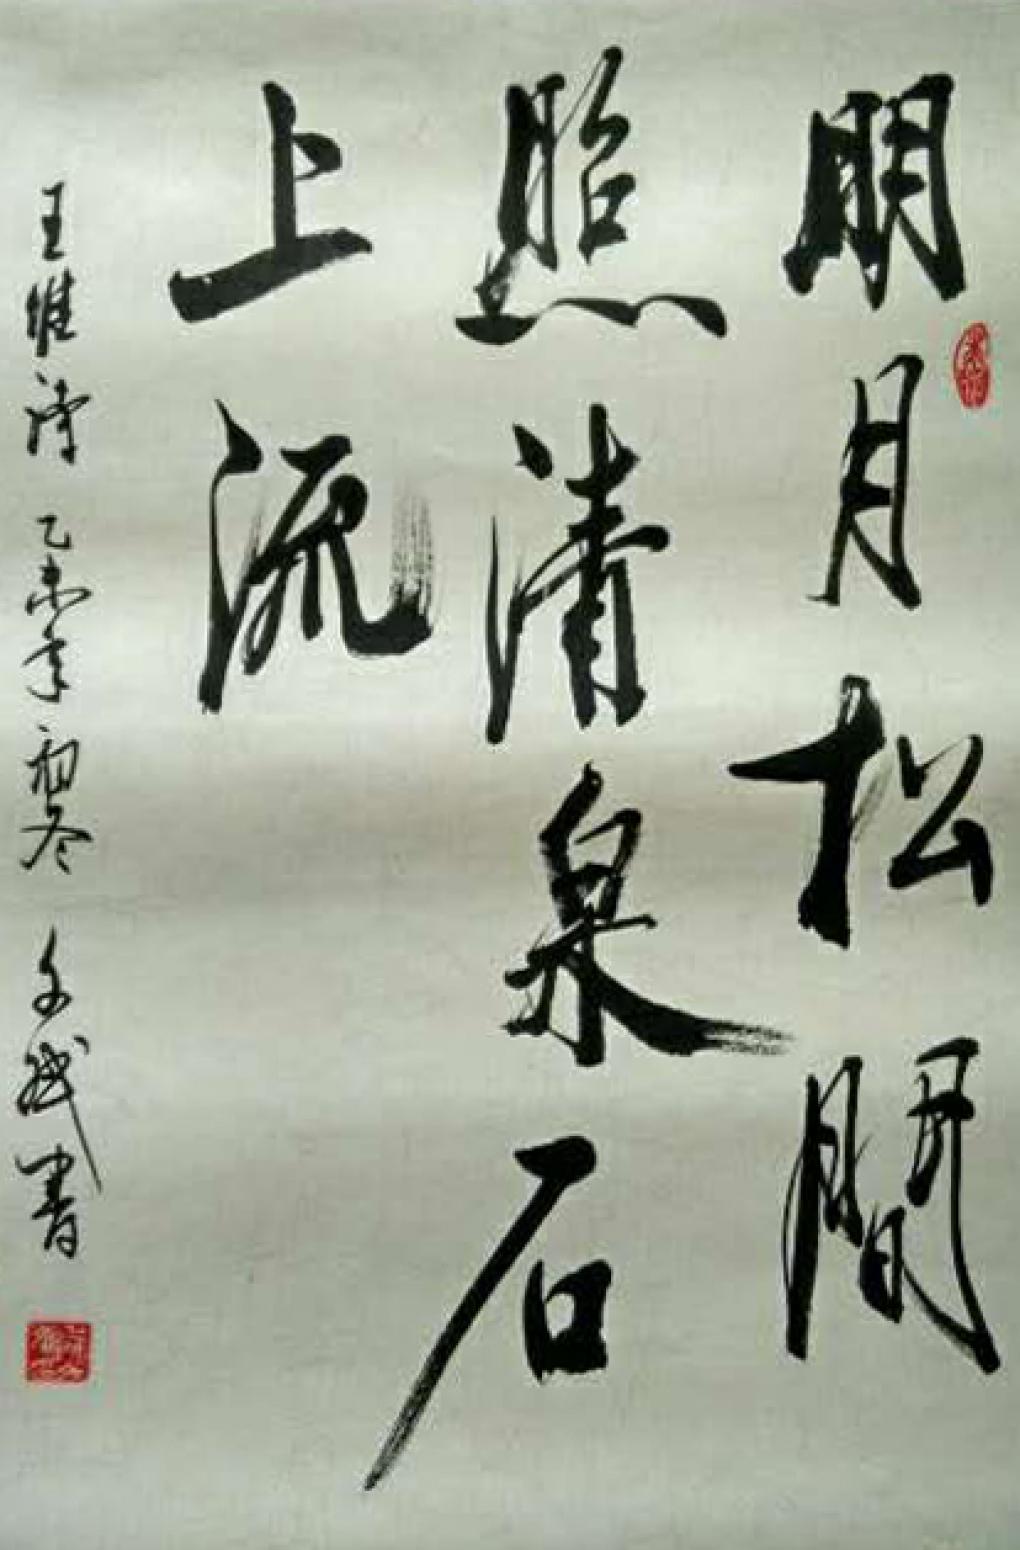 明月松間
照清泉石
上流
王維詩 乙未年初冬 書